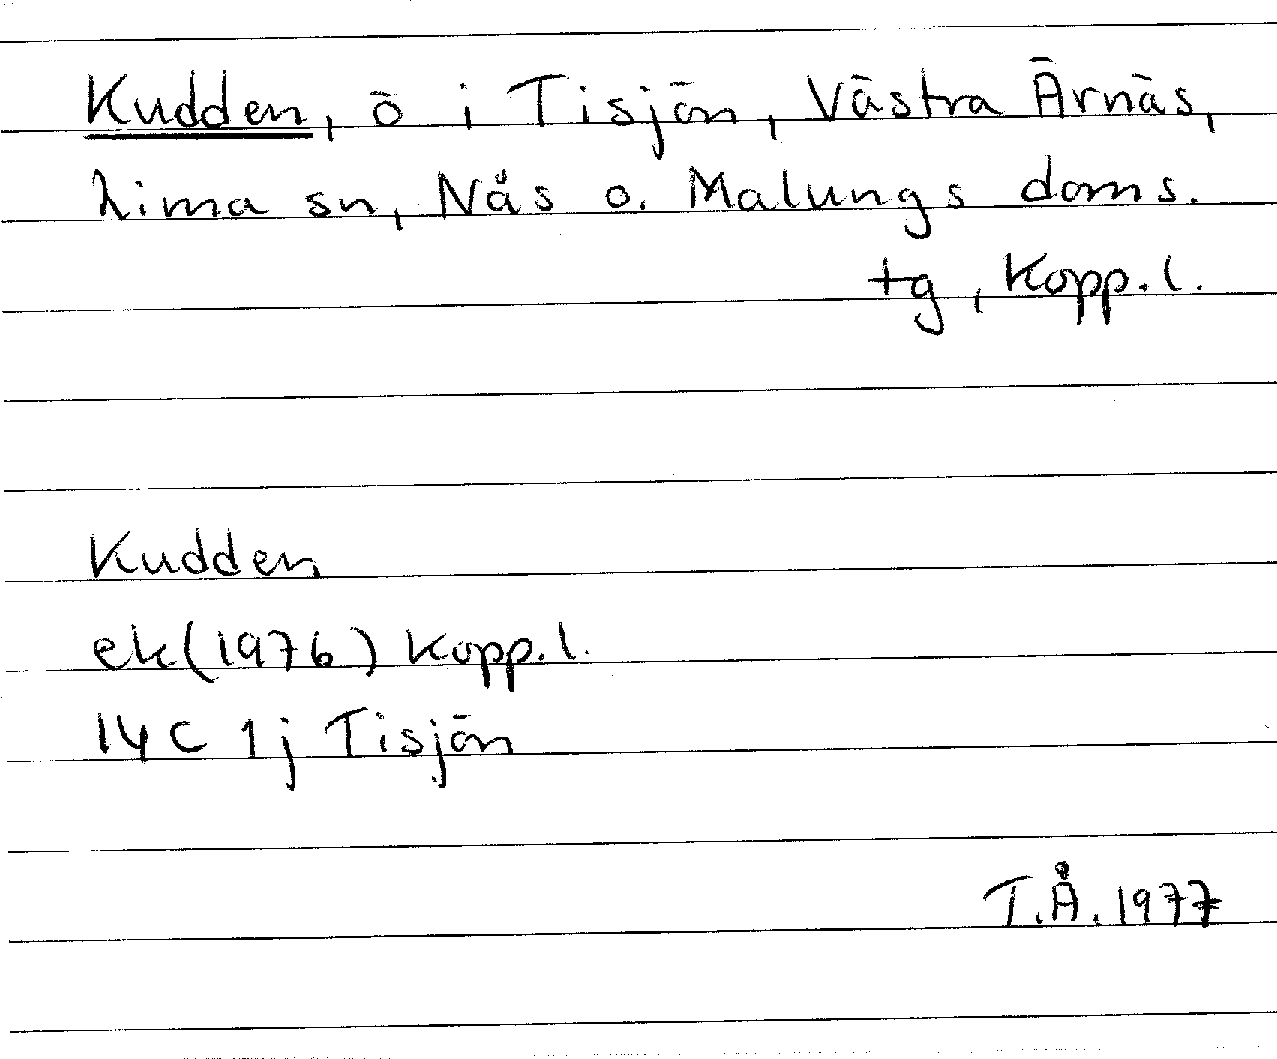 Kudden, ö i Tisjön, Västra Ärnäs,
Lima sn, Nås o. Malungs doms.
tg, Kopp.l.
Kudden
ek(1976) Kopp.l.
14C 1j Tisjön
T.Å. 1977